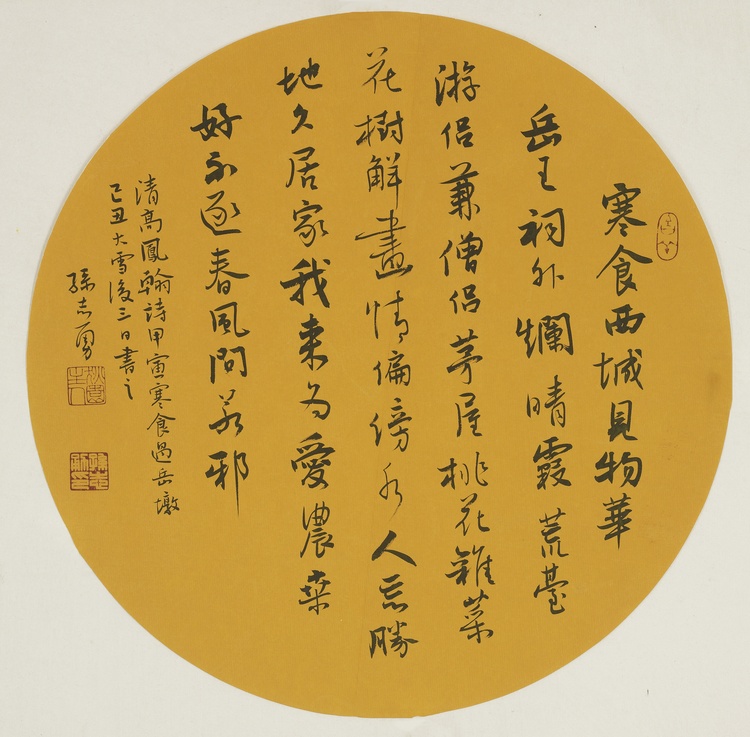 寒食西城見物華
岳王祠外爛晴霞荒臺
游侶兼僧侶茅屋桃花雜菜
花樹解畫情偏傍水人忘勝
地久居家我來為愛濃桑
好不逐春風問若邪
清高鳳翰詩甲寅寒食過岳墩
己丑大雪後三日書之
孫志勇